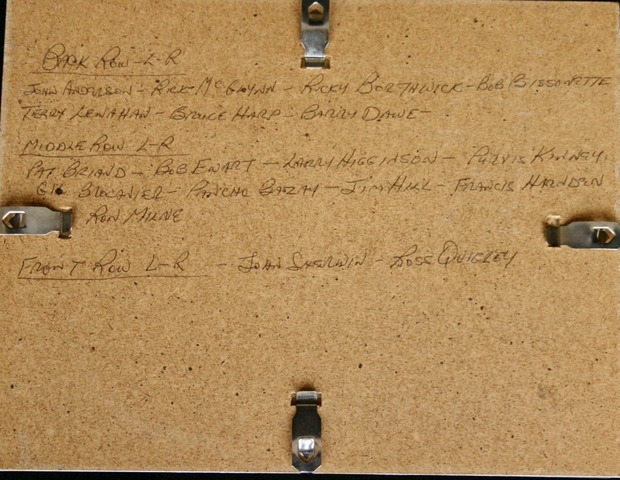 BACK ROW - L-R
JOHN ANDERSON - RICK McGLYNN - RICKY BORTHWICK - BOB BISSONETTE
TERRY LENAHAN - BRUCE HARP - BARRY DAWE -
MIDDLE ROW L-R
PAT BRIAND - BOB EWART - LARRY HIGGINSON - PURVIS KANNEY,
GIL - PANCHO - JIM HILL - FRANCIS HARNDEN
RON MILNE
FRONT ROW L-R - JOHN SHERWIN - ROSS QUIGLEY